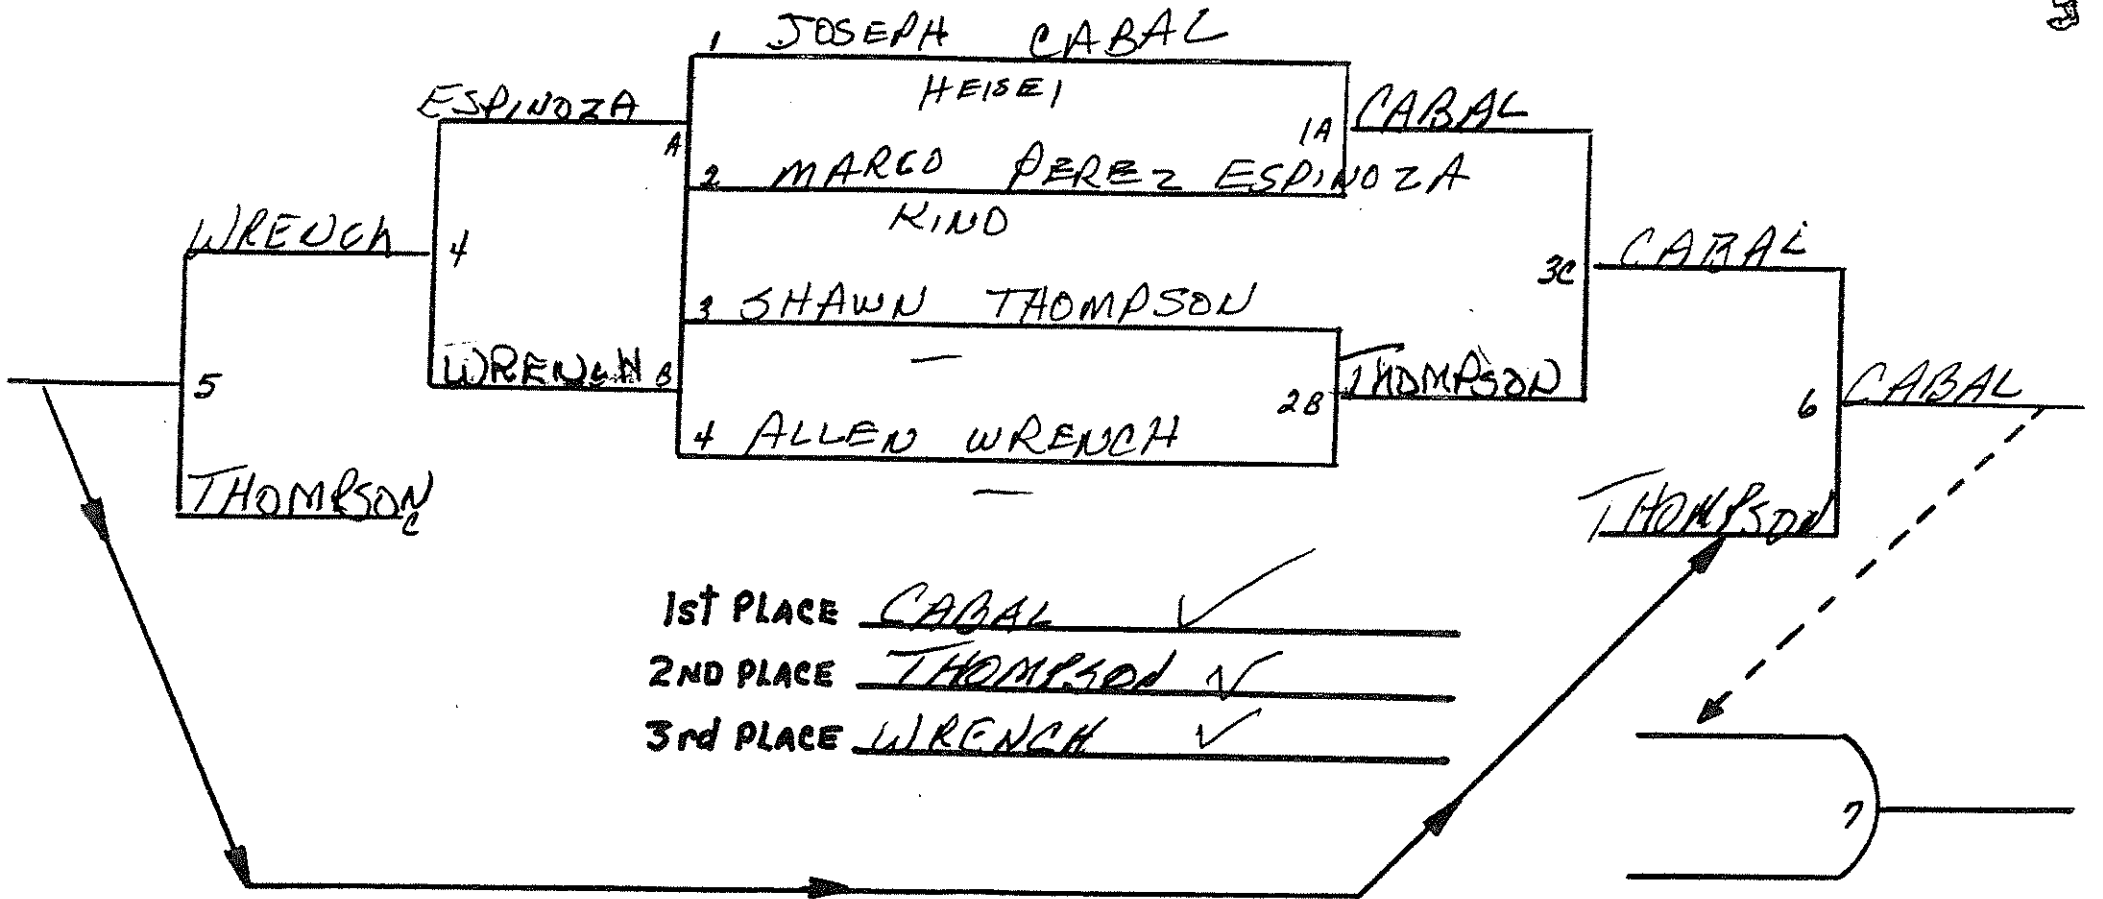 1 JOSEPH CABAL
HEISEI
ESPINOZA
A
1A
CABAL
2 MARCO PEREZ ESPINOZA
KINO
WRENCH
4
3C
CABAL
3 SHAWN THOMPSON
—
WRENCH B
2B
THOMPSON
5
6
CABAL
4 ALLEN WRENCH
—
THOMPSON
C
THOMPSON
1st PLACE CABAL ✓
2ND PLACE THOMPSON ✓
3rd PLACE WRENCH ✓
7